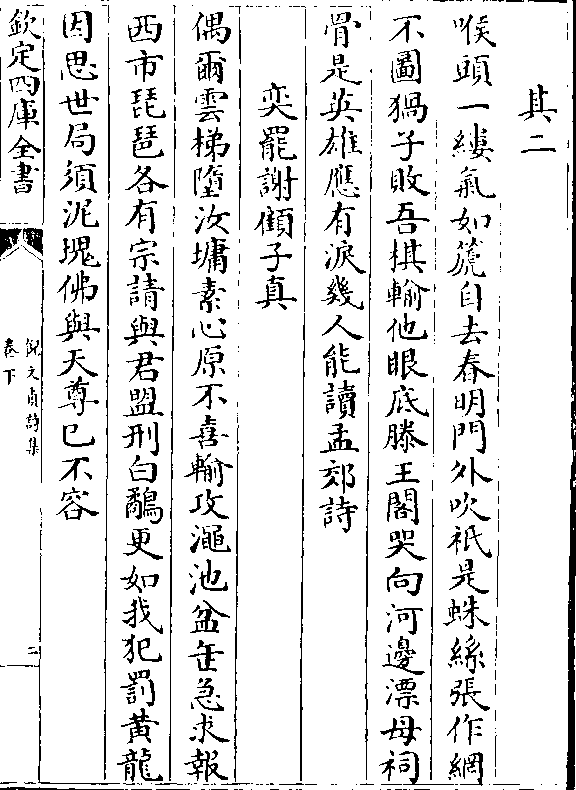 其二
喉頭一縷氣如箎自去春明門外吹祇是蛛絲張作網
不圖猧子敗吾棋輸他眼底滕王閣哭向河邊漂母祠
骨是英雄應有淚幾人能讀孟郊詩
奕罷謝顧子真
偶爾雲梯墮汝墉素心原不喜輸攻澠池盆缶急求報
西市琵琶各有宗請與君盟刑白鷴更如我犯罰黃龍
因思世局須泥塊佛與天尊已不容
欽定四庫全書
倪文貞詩集
卷下
二